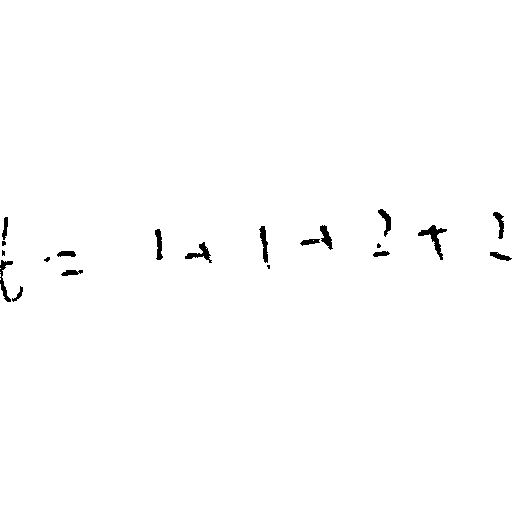 t = 1 + 1 + 2 + 2